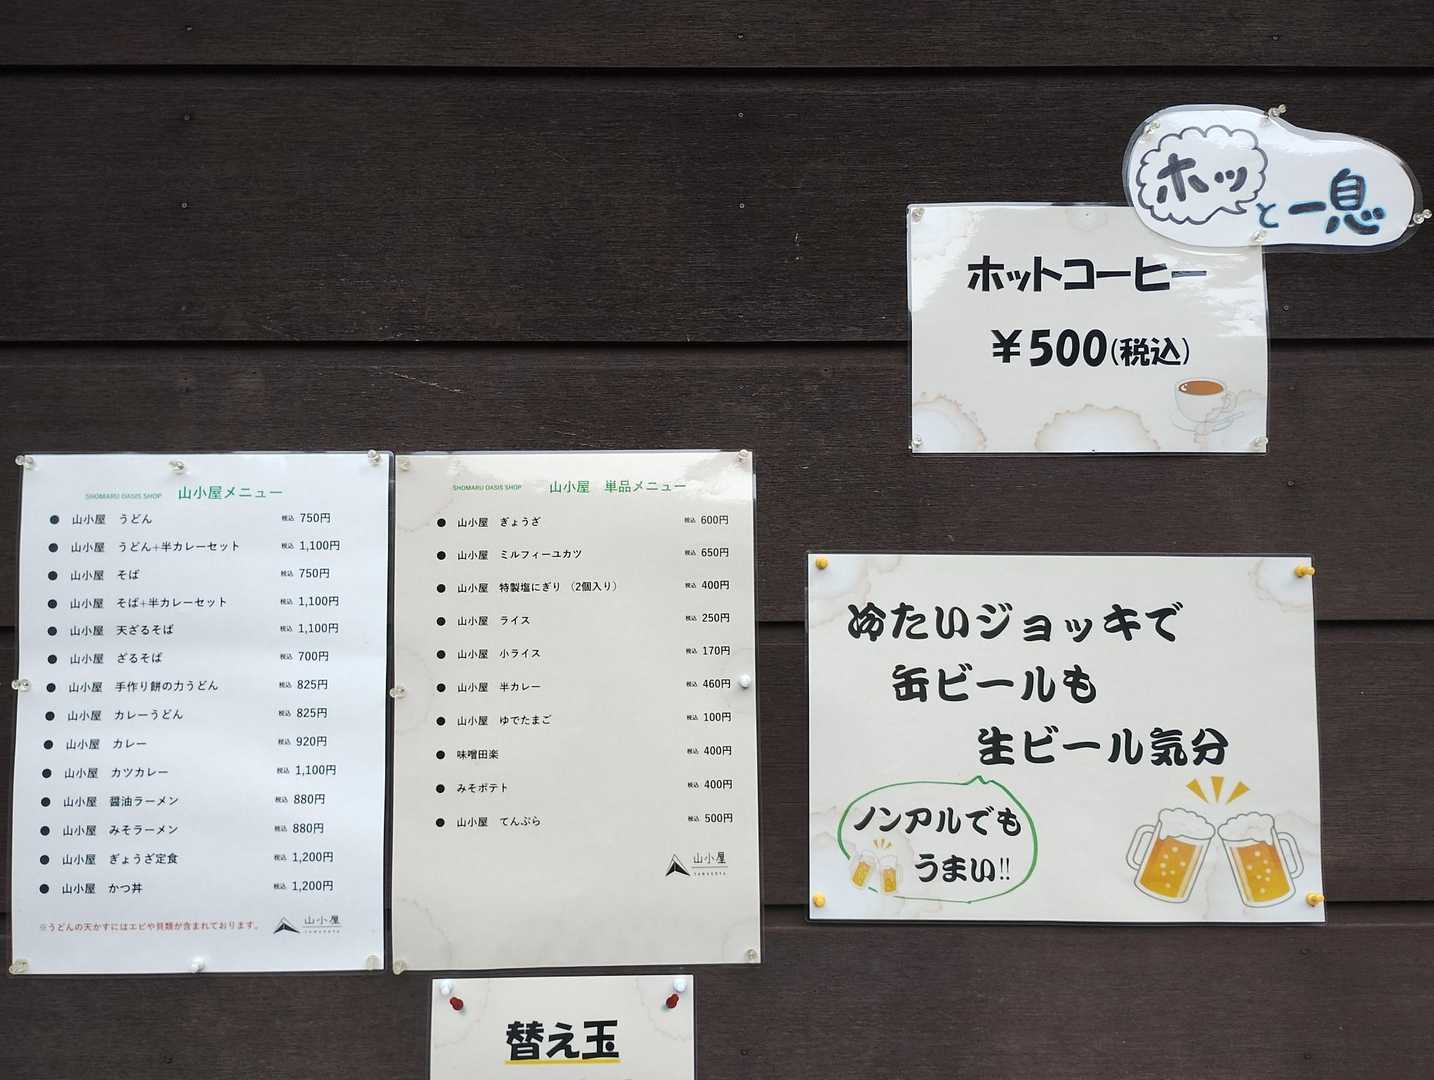 ホッと一息
ホットコーヒー
¥500(税込)
SHOMARU OASIS SHOP 山小屋メニュー
● 山小屋 うどん 税込 750円
● 山小屋 うどん+半カレーセット 税込 1,100円
● 山小屋 そば 税込 750円
● 山小屋 そば+半カレーセット 税込 1,100円
● 山小屋 天ざるそば 税込 1,100円
● 山小屋 ざるそば 税込 700円
● 山小屋 手作り餅の力うどん 税込 825円
● 山小屋 カレーうどん 税込 825円
● 山小屋 カレー 税込 920円
● 山小屋 カツカレー 税込 1,100円
● 山小屋 醤油ラーメン 税込 880円
● 山小屋 みそラーメン 税込 880円
● 山小屋 ぎょうざ定食 税込 1,200円
● 山小屋 かつ丼 税込 1,200円
※うどんの天かすにはエビや貝類が含まれております。
山小屋
YAMAGOYA
SHOMARU OASIS SHOP 山小屋 単品メニュー
● 山小屋 ぎょうざ 税込 600円
● 山小屋 ミルフィーユカツ 税込 650円
● 山小屋 特製塩にぎり (2個入り) 税込 400円
● 山小屋 ライス 税込 250円
● 山小屋 小ライス 税込 170円
● 山小屋 半カレー 税込 460円
● 山小屋 ゆでたまご 税込 100円
● 味噌田楽 税込 400円
● みそポテト 税込 400円
● 山小屋 てんぷら 税込 500円
山小屋
YAMAGOYA
冷たいジョッキで
缶ビールも
生ビール気分
ノンアルでも
うまい!!
替え玉